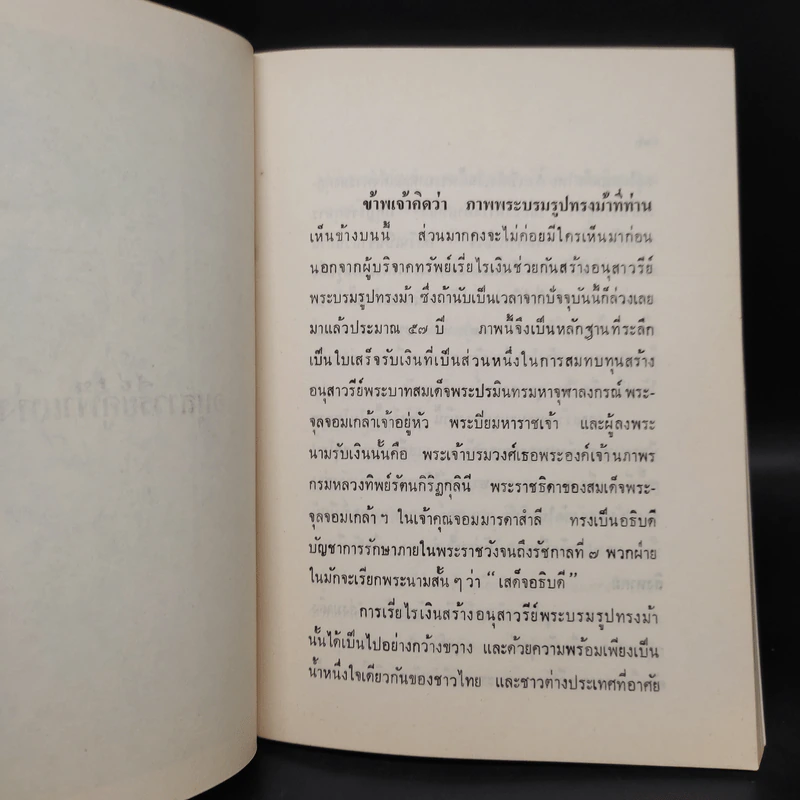 ข้าพเจ้าคิดว่า ภาพพระบรมรูปทรงม้าที่ท่าน
เห็นข้างบนนี้ ส่วนมากคงจะไม่ค่อยมีใครเห็นมาก่อน
นอกจากผู้บริจาคทรัพย์เรี่ยไรเงินช่วยกันสร้างอนุสาวรีย์
พระบรมรูปทรงม้า ซึ่งถ้านับเป็นเวลาจากปัจจุบันนี้ก็ล่วงเลย
มาแล้วประมาณ ๕๗ ปี ภาพนี้จึงเป็นหลักฐานที่ระลึก
เป็นใบเสร็จรับเงินที่เป็นส่วนหนึ่งในการสมทบทุนสร้าง
อนุสาวรีย์พระบาทสมเด็จพระปรมินทรมหาจุฬาลงกรณ์ พระ-
จุลจอมเกล้าเจ้าอยู่หัว พระปิยมหาราชเจ้า และผู้ลงพระ
นามรับเงินนั้นคือ พระเจ้าบรมวงศ์เธอพระองค์เจ้านภาพร
กรมหลวงทิพย์รัตนกิริฏกุลินี พระราชธิดาของสมเด็จพระ-
จุลจอมเกล้าฯ ในเจ้าคุณจอมมารดาสำลี ทรงเป็นอธิบดี
บัญชาการรักษาภายในพระราชวังจนถึงรัชกาลที่ ๗ พวกฝ่าย
ในมักจะเรียกพระนามสั้น ๆ ว่า “ เสด็จอธิบดี”
การเรี่ยไรเงินสร้างอนุสาวรีย์พระบรมรูปทรงม้า
นั้นได้เป็นไปอย่างกว้างขวาง และด้วยความพร้อมเพียงเป็น
น้ำหนึ่งใจเดียวกันของชาวไทย และชาวต่างประเทศที่อาศัย